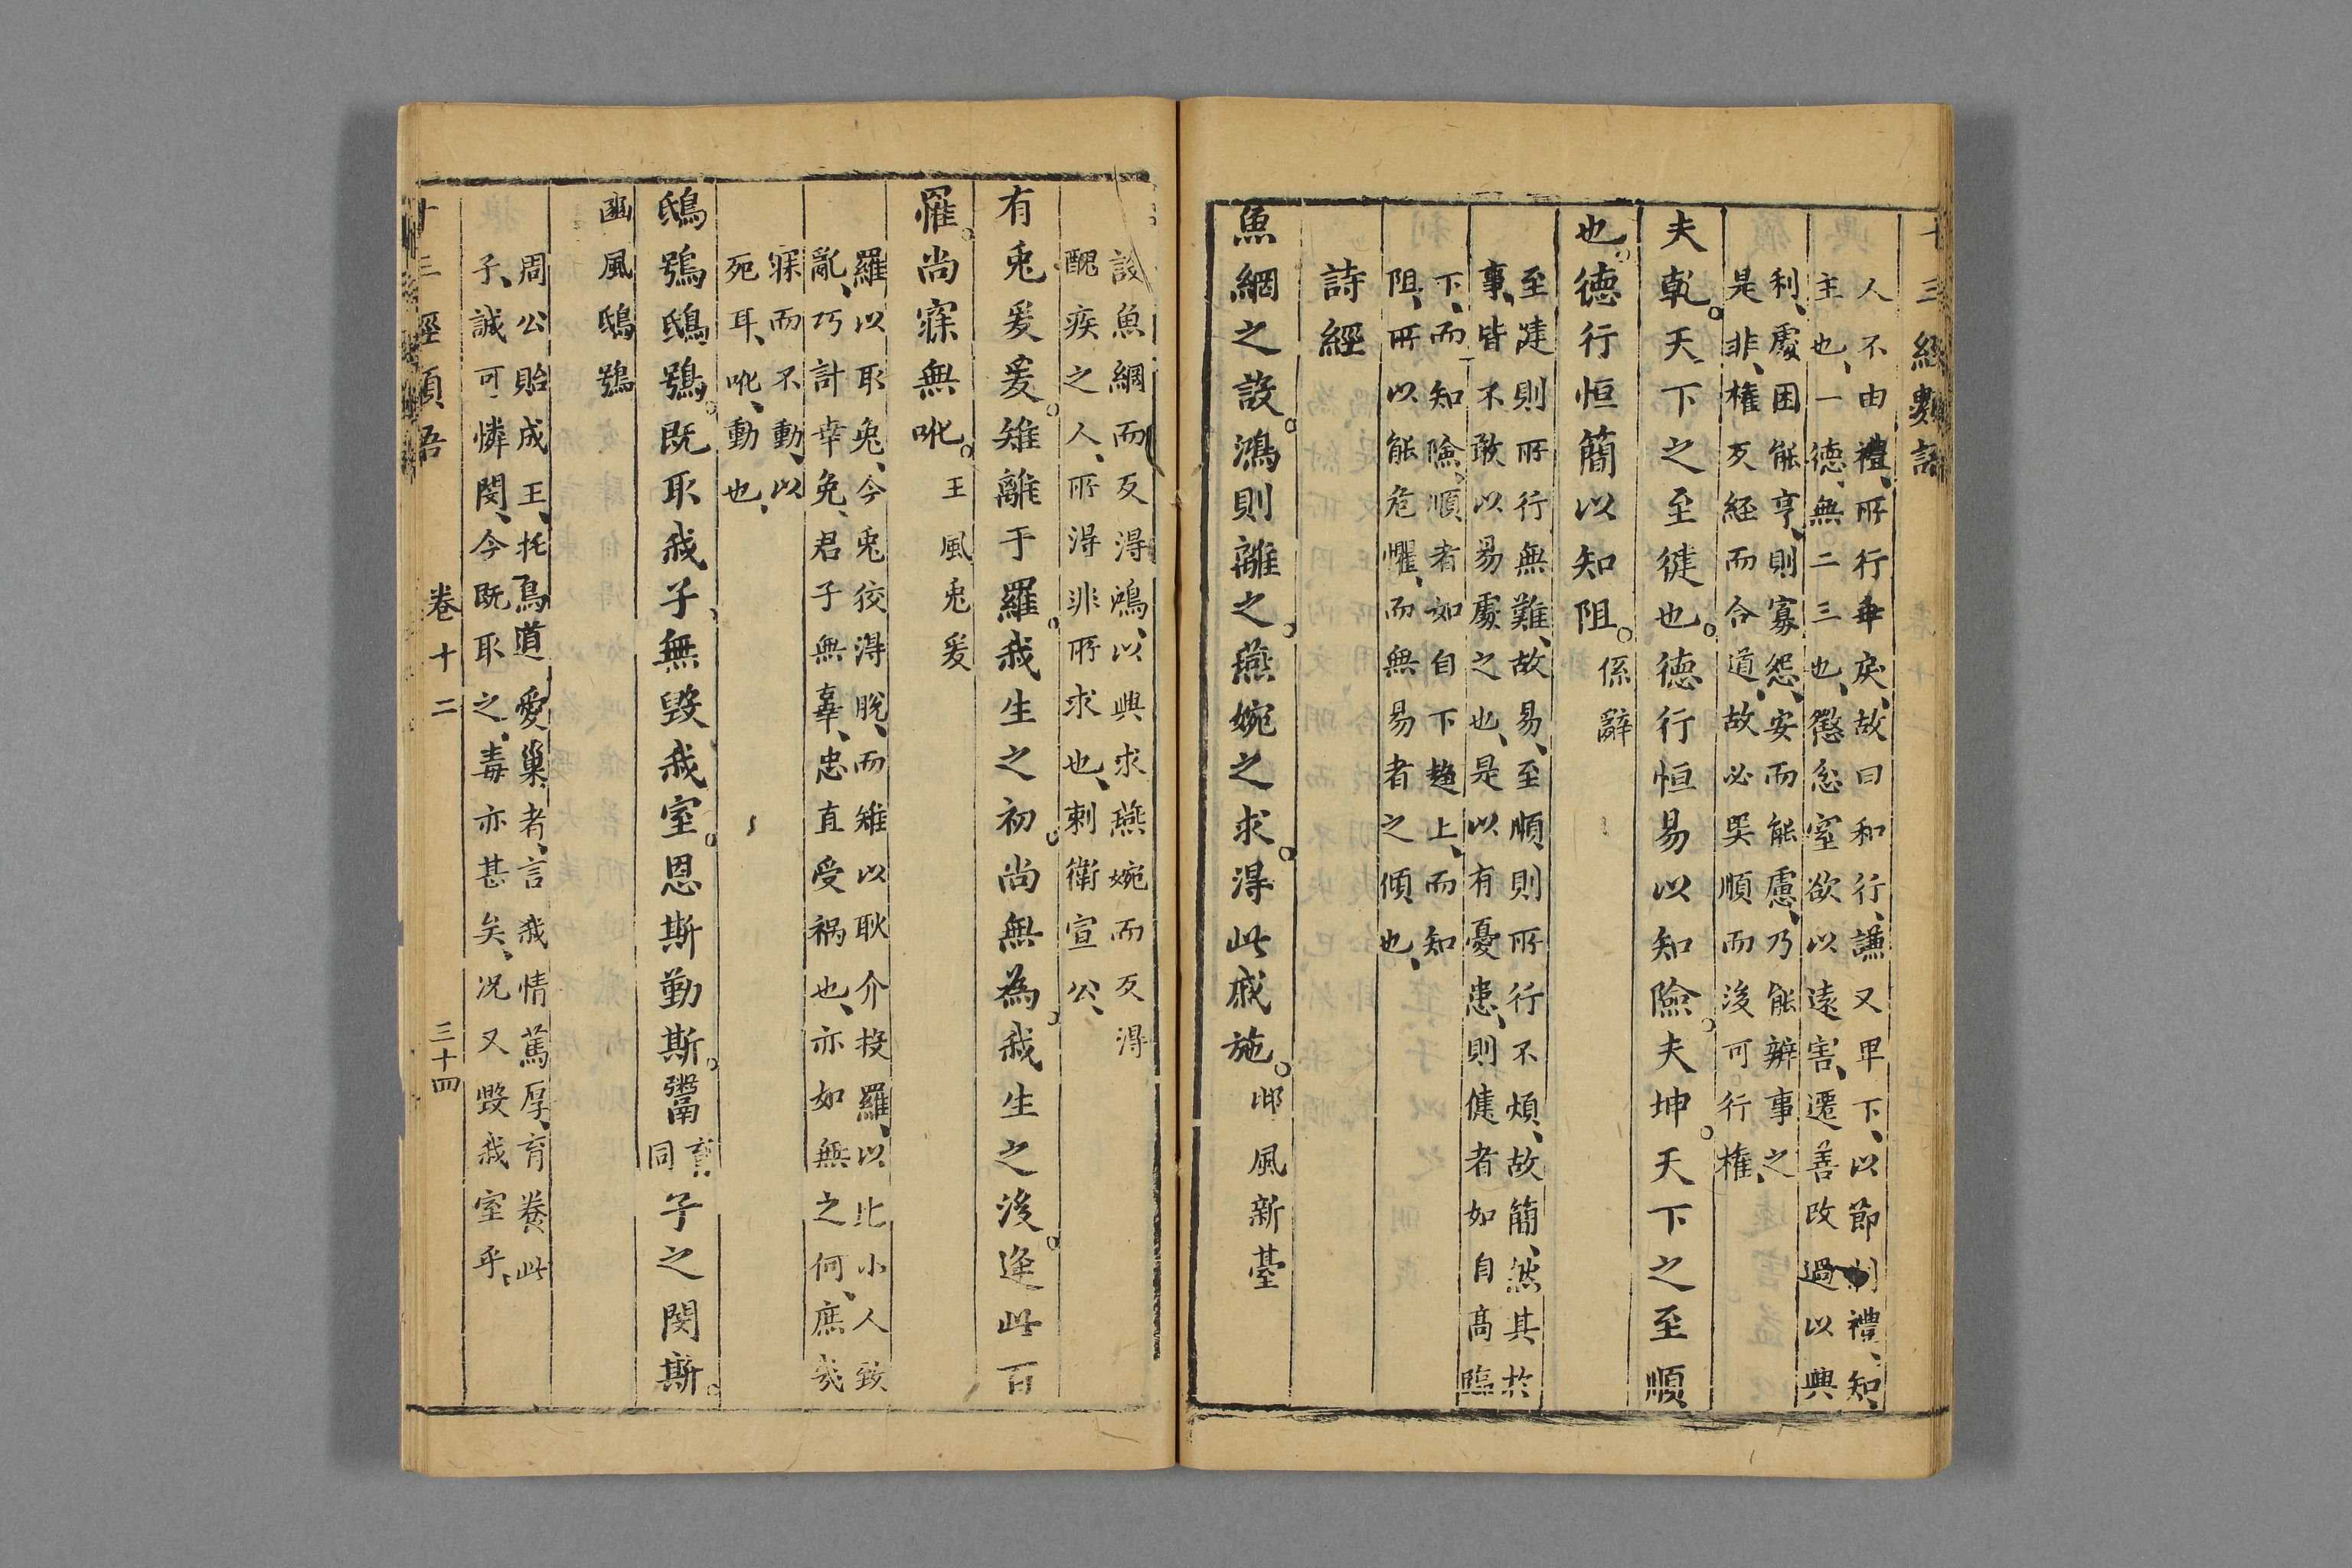 十三經類語
人不由禮、所行乖戾、故曰和行、謙又卑下、以節制禮、知、
主也、一德、無二三也、懲忿窒欲以遠害、遷善改過以興
利、處困能亨、則寡怨、安而能慮、乃能辨事之
是非、權反經而合道、故必巽順而後可行權、
夫乾。天下之至徤也。德行恒易以知險。夫坤。天下之至順
也。德行恒簡以知阻。係辭
至徤則所行無難、故易、至順則所行不煩、故簡、然其於
事、皆不敢以易處之也、是以有憂患、則徤者如自高臨
下、而知險、順者如自下趨上、而知
阻、所以能危懼、而無易者之傾也、
詩經
魚網之設。鴻則離之。燕婉之求。得此戚施。邶風新臺
設魚網而反得鴻、以興求燕婉而反得
醜疾之人、所得非所求也、刺衛宣公、
有兎爰爰。雉離于羅。我生之初。尚無為。我生之後。逢此百
罹。尚寐無吪。王風兎爰
羅以取兔、今兎狡得脫、而雉以耿介投羅、以比小人致
亂、巧計幸免、君子無辜、忠直受禍也、亦如無之何、庶幾
寐而不動、以
死耳、吪、動也、
鴟鴞鴟鴞。既取我子。無毀我室。恩斯勤斯。鬻育同子之閔斯。
豳風鴟鴞
周公貽成王、托鳥道愛巢者、言我情篤厚、育養此
子、誠可憐閔、今既取之、毒亦甚矣、况又毀我室乎、
十三經類語
卷十二
三十四